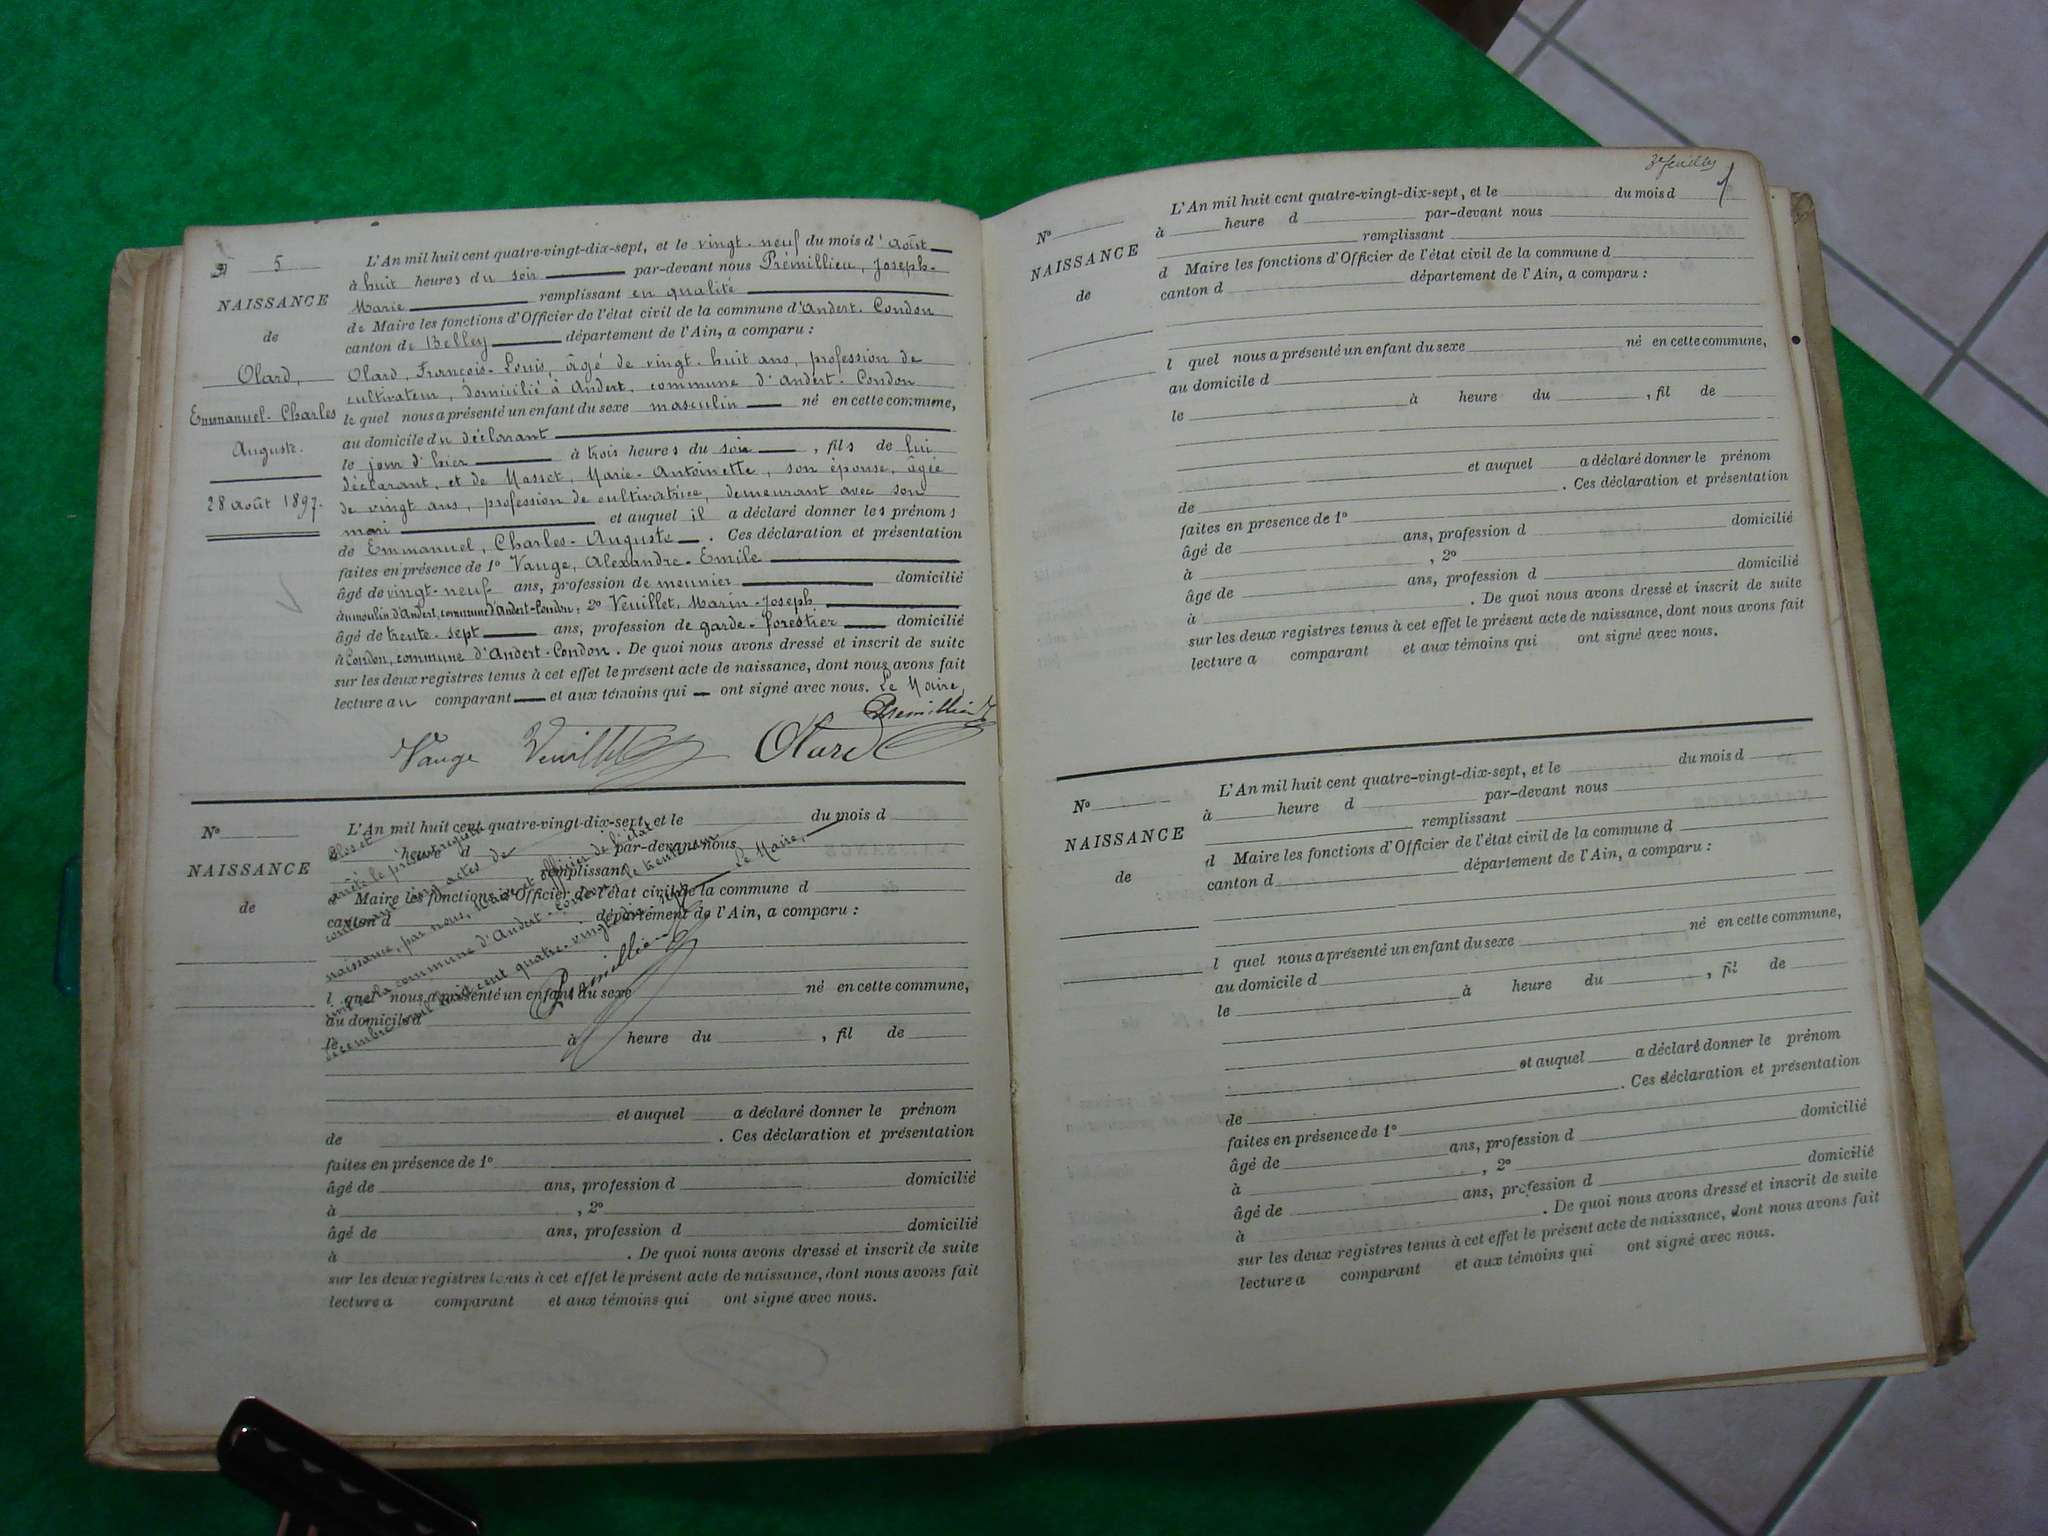 5
NAISSANCE
de
Olard,
Emmanuel-Charles
Auguste.
28 août 1897.
L'An mil huit cent quatre-vingt-dix-sept, et le vingt-neuf du mois d'août
à huit heures du soir par-devant nous Prémillieu, Joseph-
Marie remplissant en qualité
de Maire les fonctions d'Officier de l'état civil de la commune d'Andert-Condon
canton de Belley département de l'Ain, a comparu :
Olard, François-Louis, âgé de vingt-huit ans, profession de
cultivateur, domicilié à Andert, commune d'Andert-Condon
lequel nous a présenté un enfant du sexe masculin né en cette commune,
au domicile du déclarant
le jour d'hier à trois heures du soir, fils de lui
déclarant, et de Massot, Marie-Antoinette, son épouse, âgée
de vingt ans, profession de cultivatrice, demeurant avec son
mari et auquel il a déclaré donner les prénoms
de Emmanuel, Charles-Auguste. Ces déclaration et présentation
faites en présence de 1° Vauge, Alexandre-Emile
âgé de vingt-neuf ans, profession de meunier domicilié
à moulin d'Andert, commune d'Andert-Condon, 2° Veuillet, Marin-Joseph
âgé de trente-sept ans, profession de garde-forestier domicilié
à Condon, commune d'Andert-Condon. De quoi nous avons dressé et inscrit de suite
sur les deux registres tenus à cet effet le présent acte de naissance, dont nous avons fait
lecture au comparant et aux témoins qui ont signé avec nous. Le Maire,
Prémillieu
Vauge Veuillet Olard
N°
NAISSANCE
de
L'An mil huit cent quatre-vingt-dix-sept, et le du mois d
à heure d par-devant nous
remplissant
d Maire les fonctions d'Officier de l'état civil de la commune d
canton d département de l'Ain, a comparu :
l quel nous a présenté un enfant du sexe né en cette commune,
au domicile d
le à heure du , fil de
et auquel a déclaré donner le prénom
de . Ces déclaration et présentation
faites en présence de 1°
âgé de ans, profession d domicilié
à , 2°
âgé de ans, profession d domicilié
à . De quoi nous avons dressé et inscrit de suite
sur les deux registres tenus à cet effet le présent acte de naissance, dont nous avons fait
lecture a comparant et aux témoins qui ont signé avec nous.
Clos et
arrêté le présent registre
contenant cinq actes de
naissance, par nous, Maire et officier de l'état
civil de la commune d'Andert-Condon le trente-un
décembre mil huit cent quatre-vingt-dix-sept. Le Maire,
Prémillieu
3e feuillet
N°
NAISSANCE
de
L'An mil huit cent quatre-vingt-dix-sept, et le du mois d
à heure d par-devant nous
remplissant
d Maire les fonctions d'Officier de l'état civil de la commune d
canton d département de l'Ain, a comparu :
l quel nous a présenté un enfant du sexe né en cette commune,
au domicile d
le à heure du , fil de
et auquel a déclaré donner le prénom
de . Ces déclaration et présentation
faites en presence de 1°
âgé de ans, profession d domicilié
à , 2°
âgé de ans, profession d domicilié
à . De quoi nous avons dressé et inscrit de suite
sur les deux registres tenus à cet effet le présent acte de naissance, dont nous avons fait
lecture a comparant et aux témoins qui ont signé avec nous.
N°
NAISSANCE
de
L'An mil huit cent quatre-vingt-dix-sept, et le du mois d
à heure d par-devant nous
remplissant
d Maire les fonctions d'Officier de l'état civil de la commune d
canton d département de l'Ain, a comparu :
l quel nous a présenté un enfant du sexe né en cette commune,
au domicile d
le à heure du , fil de
et auquel a déclaré donner le prénom
de . Ces déclaration et présentation
faites en présence de 1°
âgé de ans, profession d domicilié
à , 2°
âgé de ans, profession d domicilié
à . De quoi nous avons dressé et inscrit de suite
sur les deux registres tenus à cet effet le présent acte de naissance, dont nous avons fait
lecture a comparant et aux témoins qui ont signé avec nous.